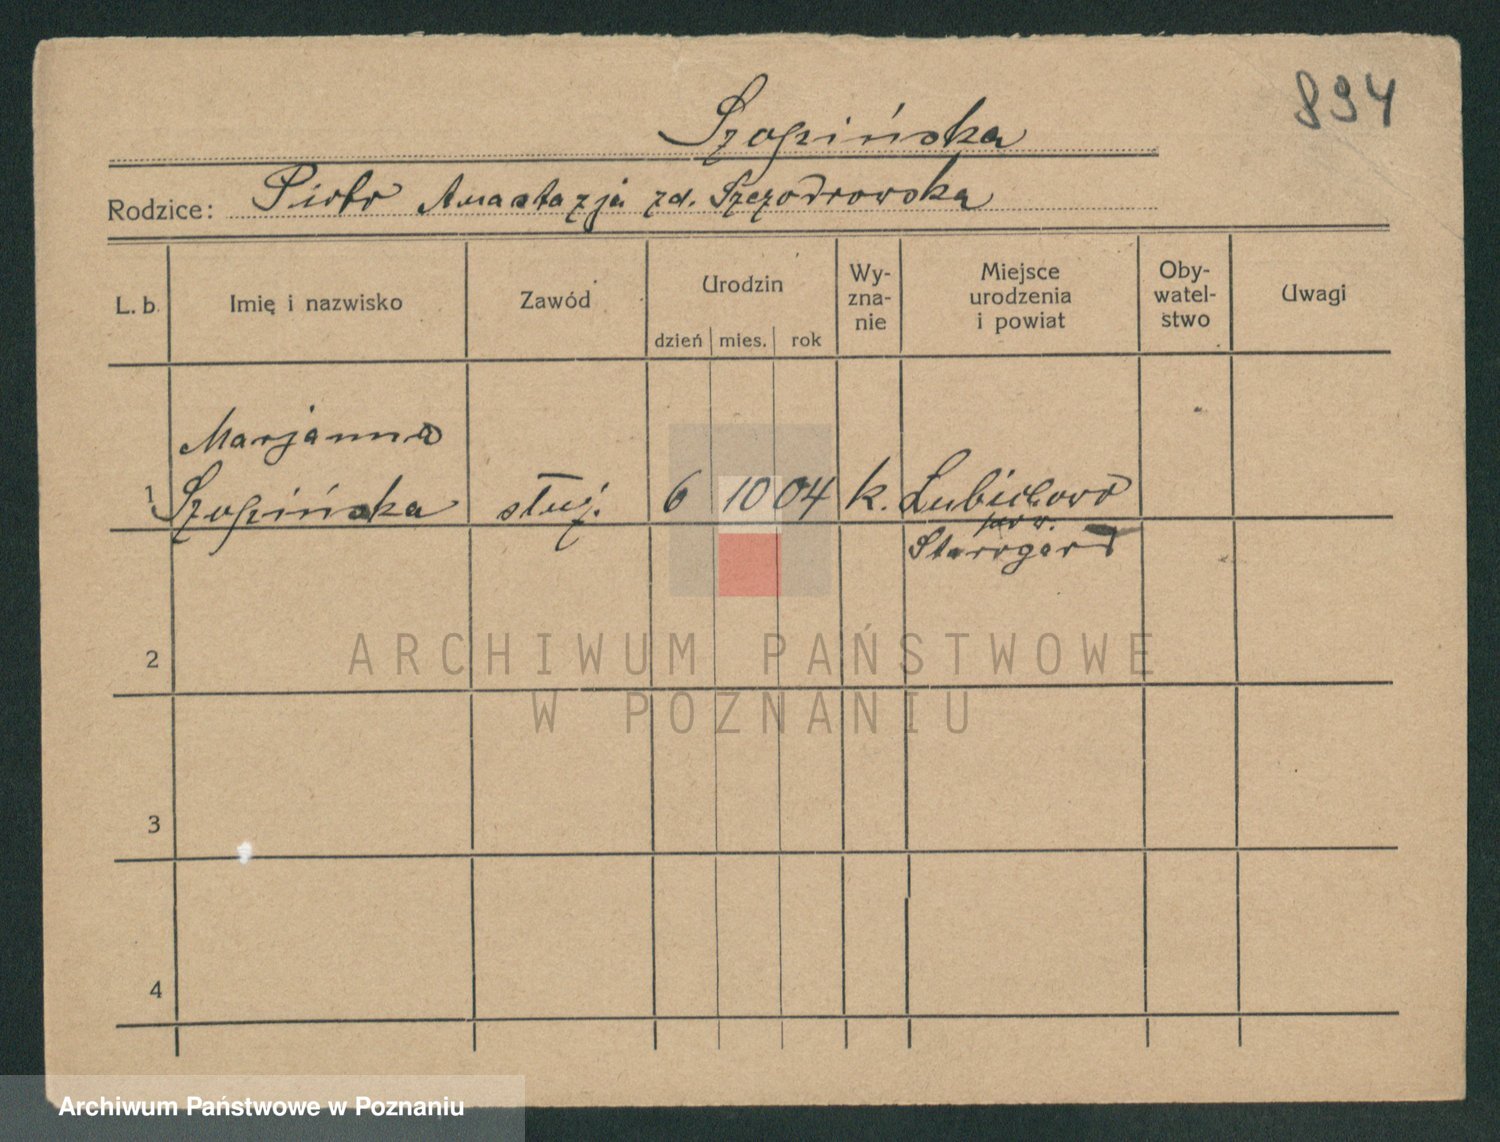 894
Szopińska
Rodzice: Piotr Anastazja zd. Szczodrowska
L. b. Imię i nazwisko Zawód Urodzin dzień mies. rok Wy-zna-nie Miejsce urodzenia i powiat Oby-watel-stwo Uwagi
1 Marjanna Szopińska służ. 6 10 04 k. Lubichowo pow. Starogard
2
ARCHIWUM PAŃSTWOWE
W POZNANIU
3
4
Archiwum Państwowe w Poznaniu